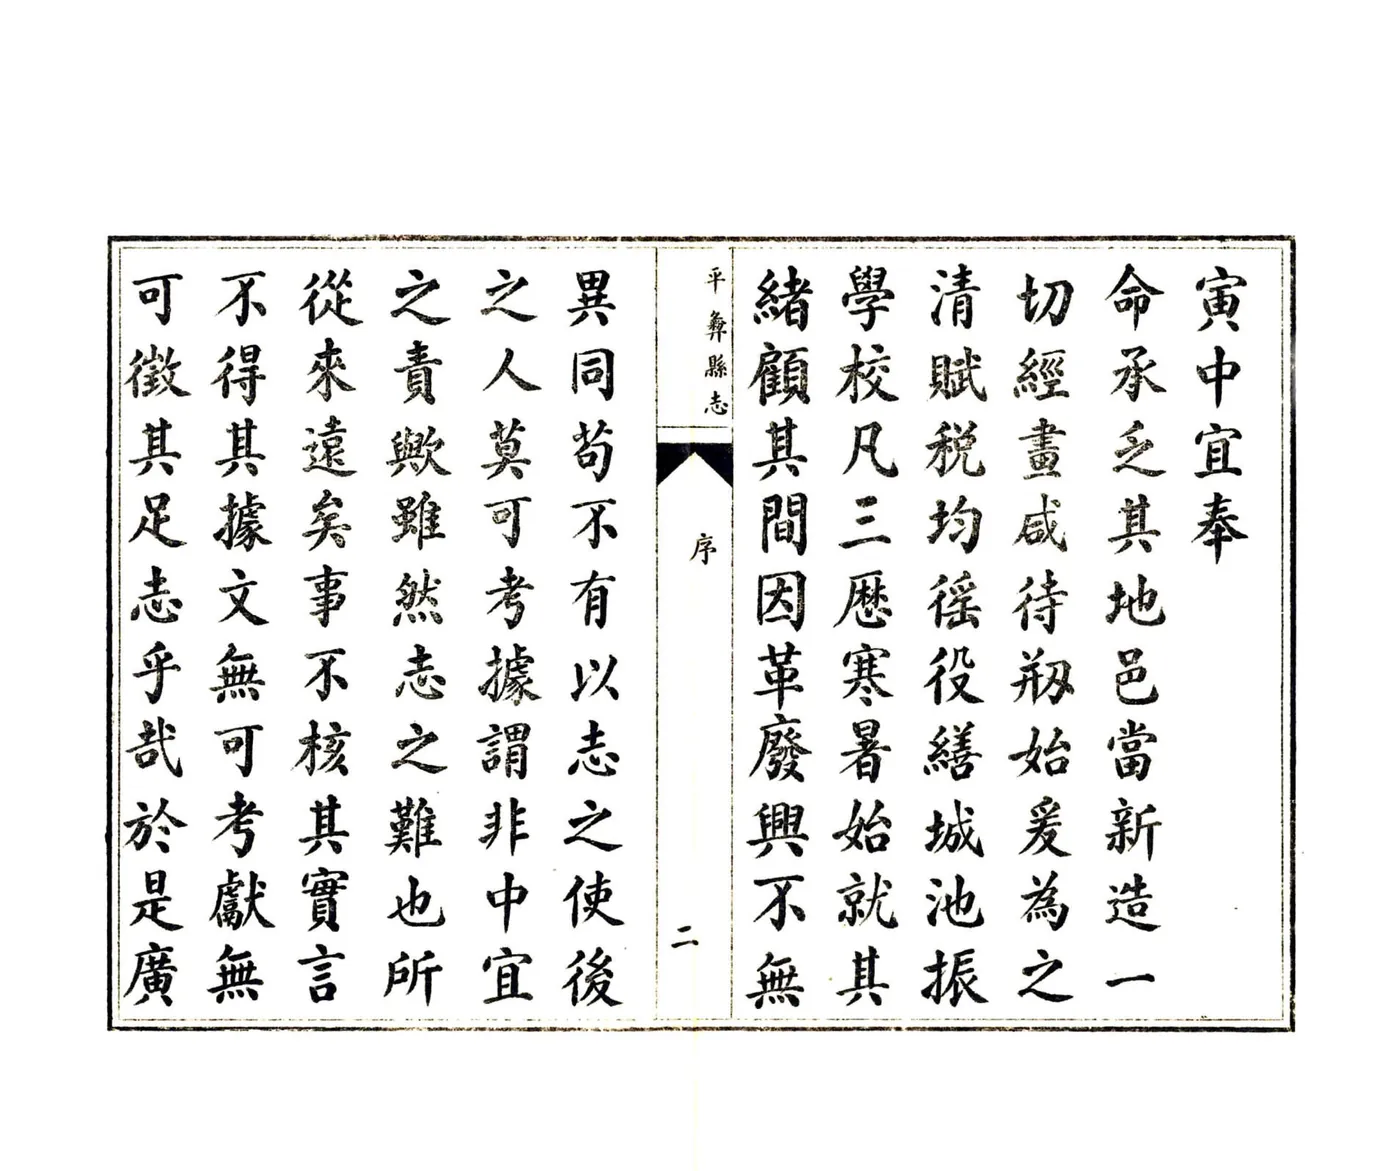 寅中宜奉
命承乏其地邑當新造一
切經畫咸待剏始爰為之
清賦税均徭役繕城池振
學校凡三歴寒暑始就其
緒顧其間因革廢興不無
平彝縣志
序
二
異同苟不有以志之使後
之人莫可考據謂非中宜
之責歟雖然志之難也所
從來遠矣事不核其實言
不得其據文無可考獻無
可徵其足志乎哉於是廣